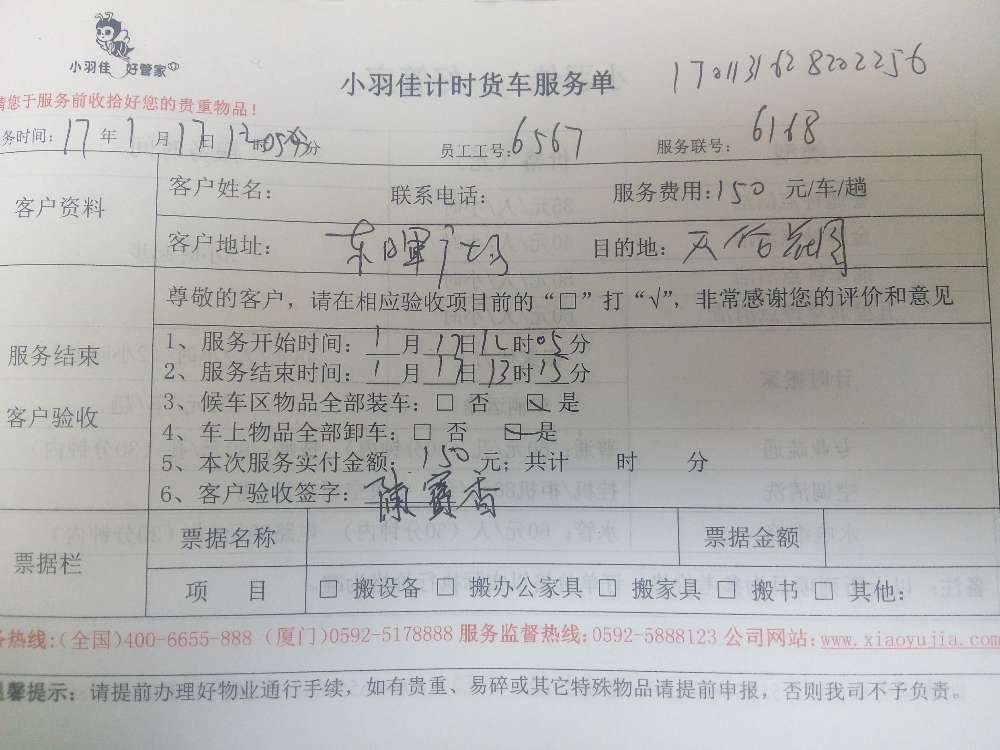 小羽佳 好管家
小羽佳计时货车服务单
1701131628202256
请您于服务前收拾好您的贵重物品！
务时间：17年1月17日12时05分
员工工号：6567
服务联号：6168
客户资料
客户姓名： 联系电话： 服务费用：150 元/车/趟
客户地址：东晖广场 目的地：
服务结束
客户验收
尊敬的客户，请在相应验收项目前的“□”打“√”，非常感谢您的评价和意见
1、服务开始时间：1月17日12时05分
2、服务结束时间：1月17日13时15分
3、候车区物品全部装车：□ 否 ☑ 是
4、车上物品全部卸车：□ 否 ☑ 是
5、本次服务实付金额：150 元；共计 时 分
6、客户验收签字：陈宝香
票据栏
票据名称 票据金额
项 目 □ 搬设备 □ 搬办公家具 □ 搬家具 □ 搬书 □ 其他：
务热线：(全国)400-6655-888 (厦门)0592-5178888 服务监督热线：0592-5888123 公司网站：www.xiaoyujia.com
温馨提示：请提前办理好物业通行手续，如有贵重、易碎或其它特殊物品请提前申报，否则我司不予负责。